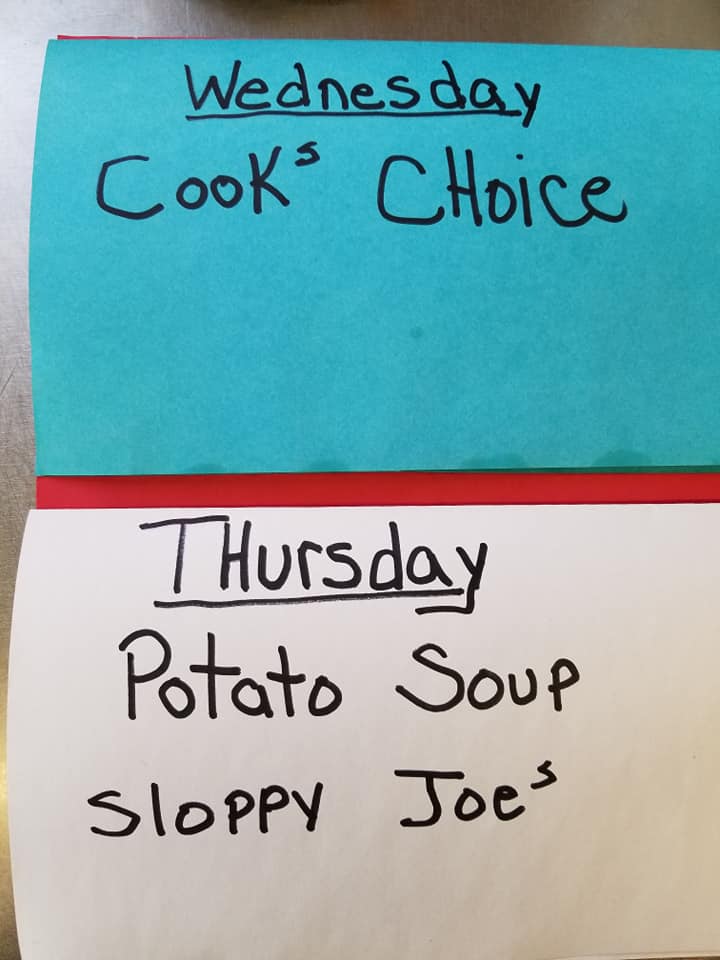 Wednesday
Cooks CHoice
THursday
Potato Soup
Sloppy Joes